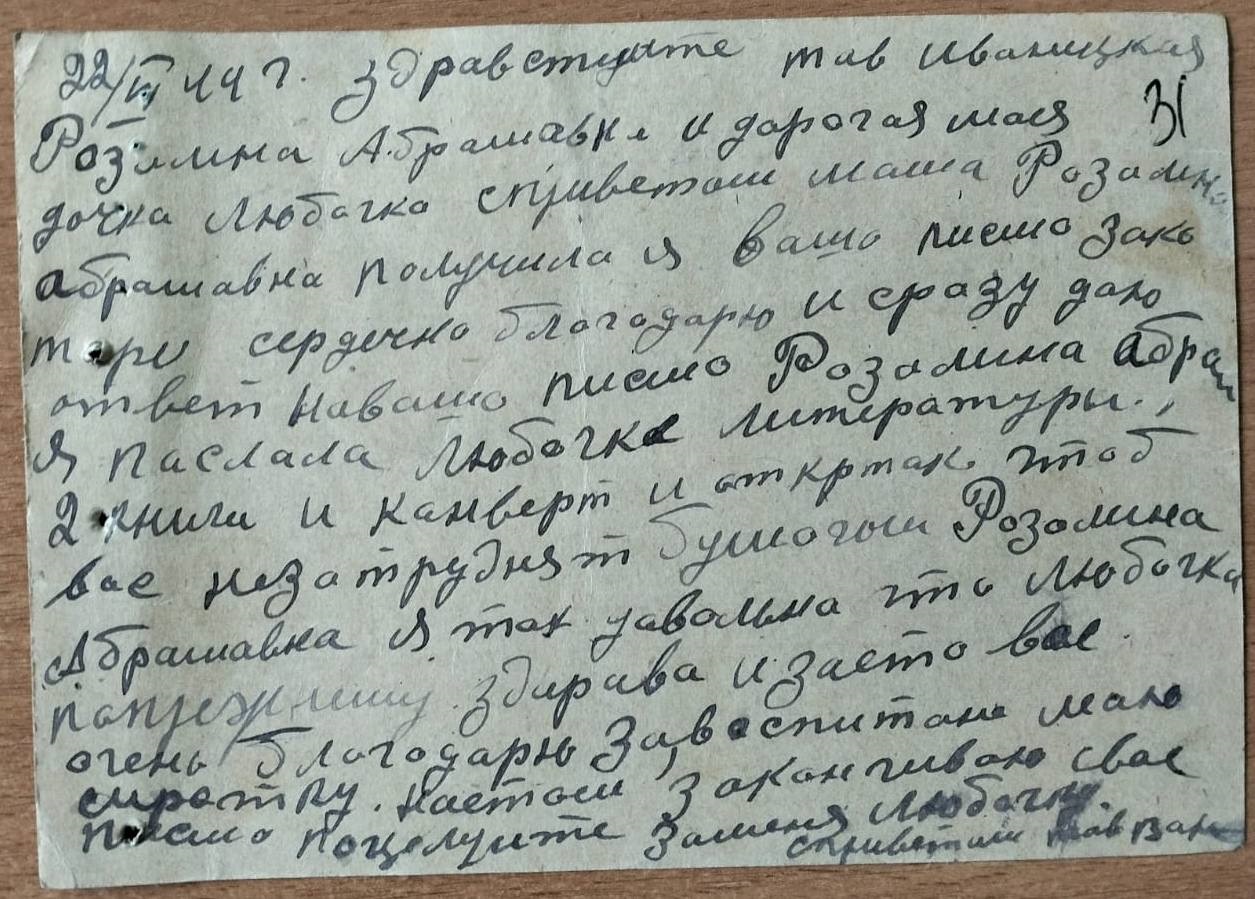 22/VI 44 г. здравствуите тов Иваницкая
31
Розалина Абрашавна и дарогая мая
дочка Любочка сприветом мама Розалина
абрашавна получила я вашо писмо зако
торе сердечно благодарю и сразу даю
ответ навашо писмо Розалина абраш
я паслала Любочке литературы.,
2 книги и канверт и аткртак чтоб
вас незатруднят бумогой Розалина
Абрашавна я так давольна что Любочка
попрежниму здарава и заето вас
очень благодарю за воспитане маю
сиротку. настом заканчиваю свае
писмо поцелуите заменя Любочку.
сприветом тов